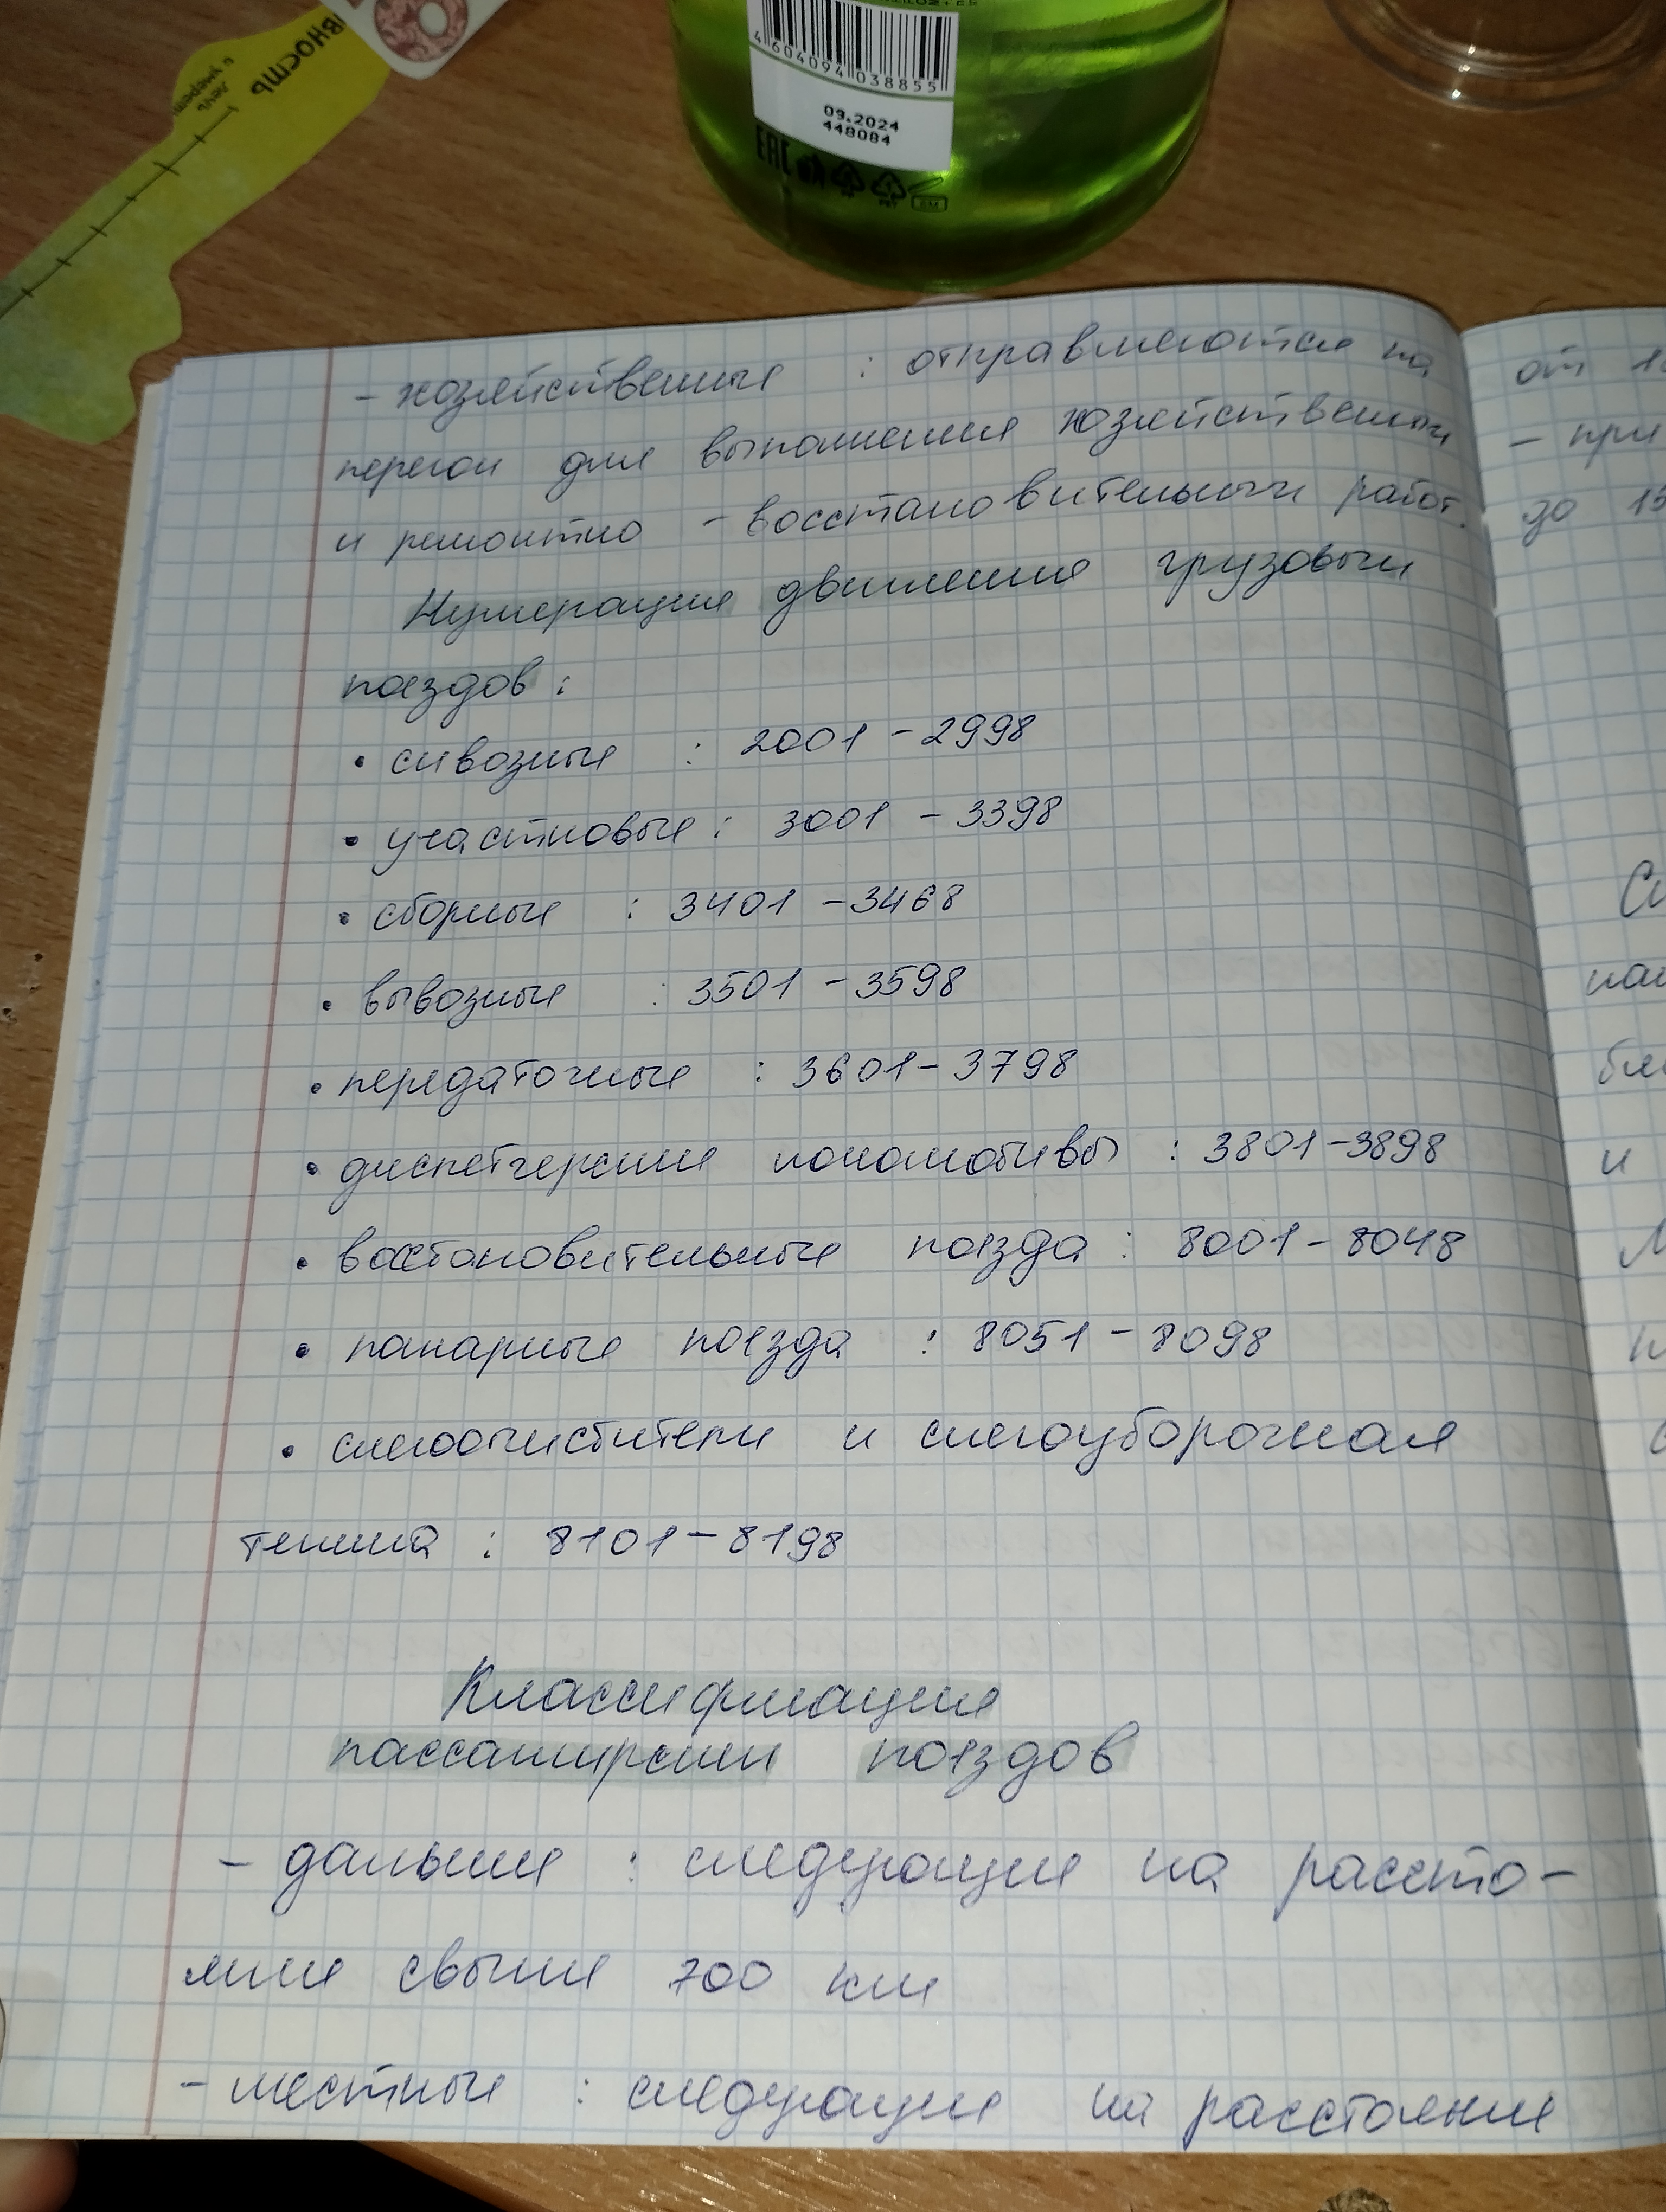 вность
4 604094 038855
09.2024
448084
EAC
- хозяйственные : отправляются на
перегон для выполнения хозяйственных
и ремонтно - восстановительных работ.
Нумерация движения грузовых
поездов :
• сквозные : 2001 - 2998
• участковые : 3001 - 3398
• сборные : 3401 - 3468
• вывозные : 3501 - 3598
• передаточные : 3601 - 3798
• диспетчерские локомотивы : 3801 - 3898
• восстановительные поезда : 8001 - 8048
• пожарные поезда : 8051 - 8098
• снегоочистители и снегоуборочная
техника : 8101 - 8198
Классификация
пассажирских поездов
- дальние : следующие на рассто-
яние свыше 700 км
- местные : следующие на расстояние
от
- при
до 15
и